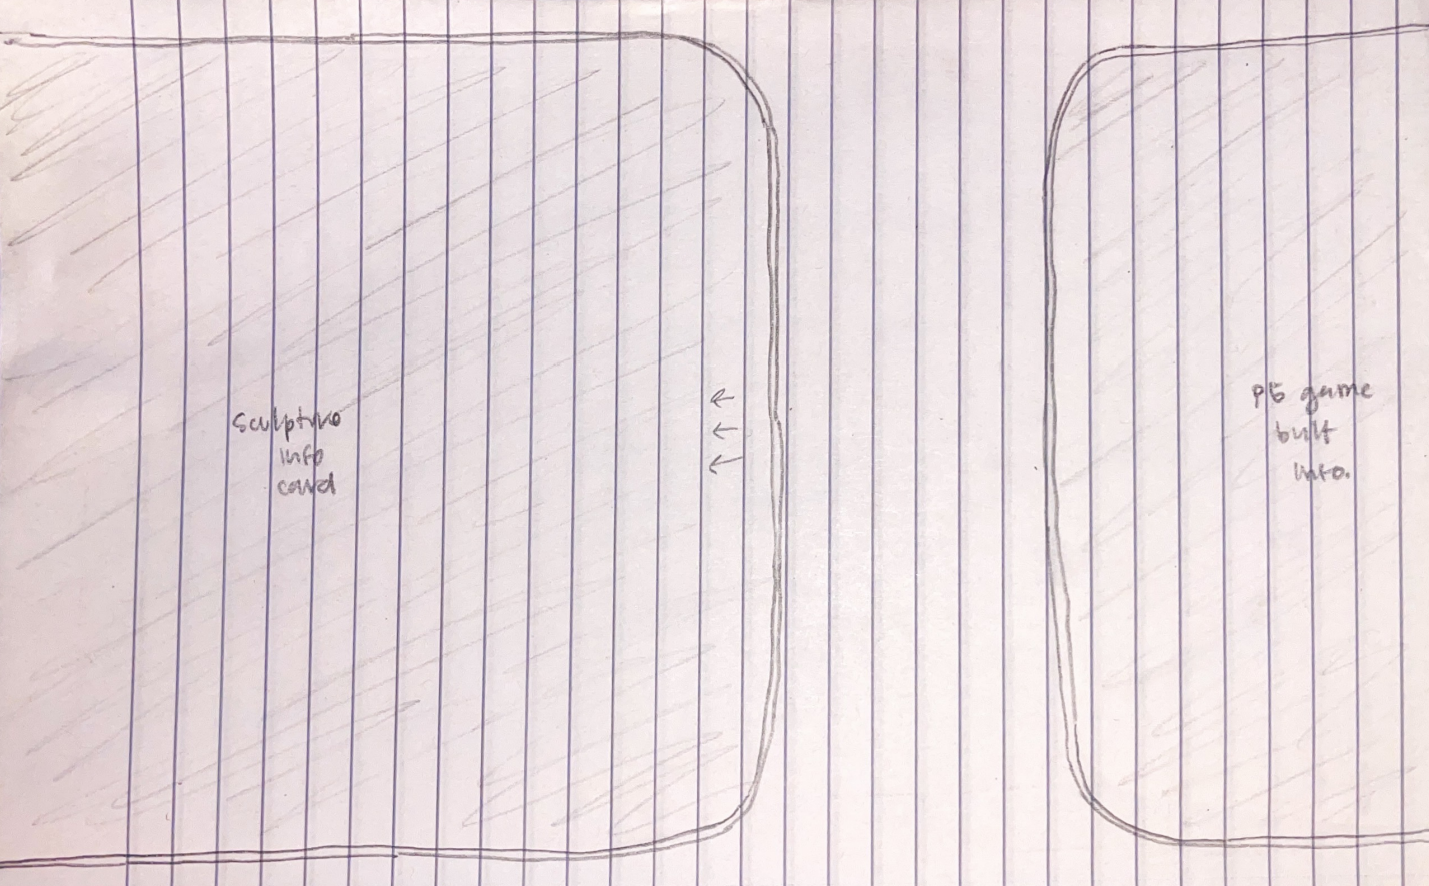 sculpture
info
card
p5 game
built
into.